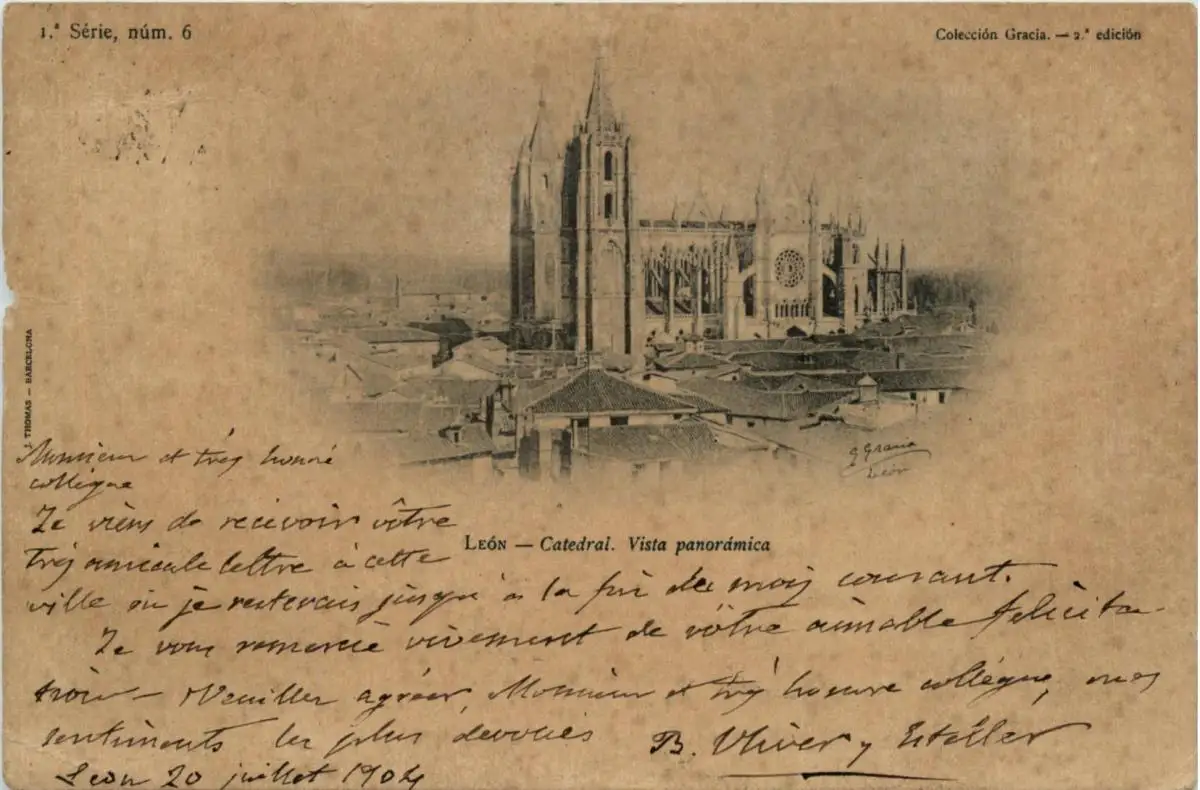 1.ª Série, núm. 6
Colección Gracia. — 2.ª edición
J. THOMAS — BARCELONA
G. Gracia
León
Monsieur et trés honoré
collégue
Je viens de recevoir vôtre
trés amicale lettre à cette
ville ou je resterais jusqu'à la fin des mois courant.
LEÓN — Catedral. Vista panorámica
Je vous remercie vivement de vôtre aimable félicita-
tion — Veuillez agréer, Monsieur et trés honoré collégue, mes
sentiments les plus devoués
B. Oliver y Estéller
Léon 20 juillet 1904